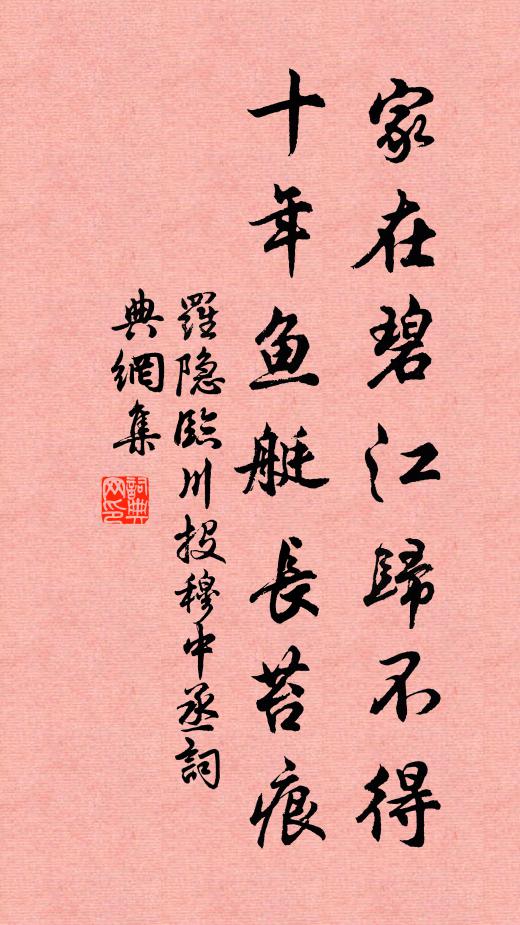 家在碧江歸不得
十年鱼艇長苔痕
羅隐臨川投穆中丞詞
典網集
詞典网印